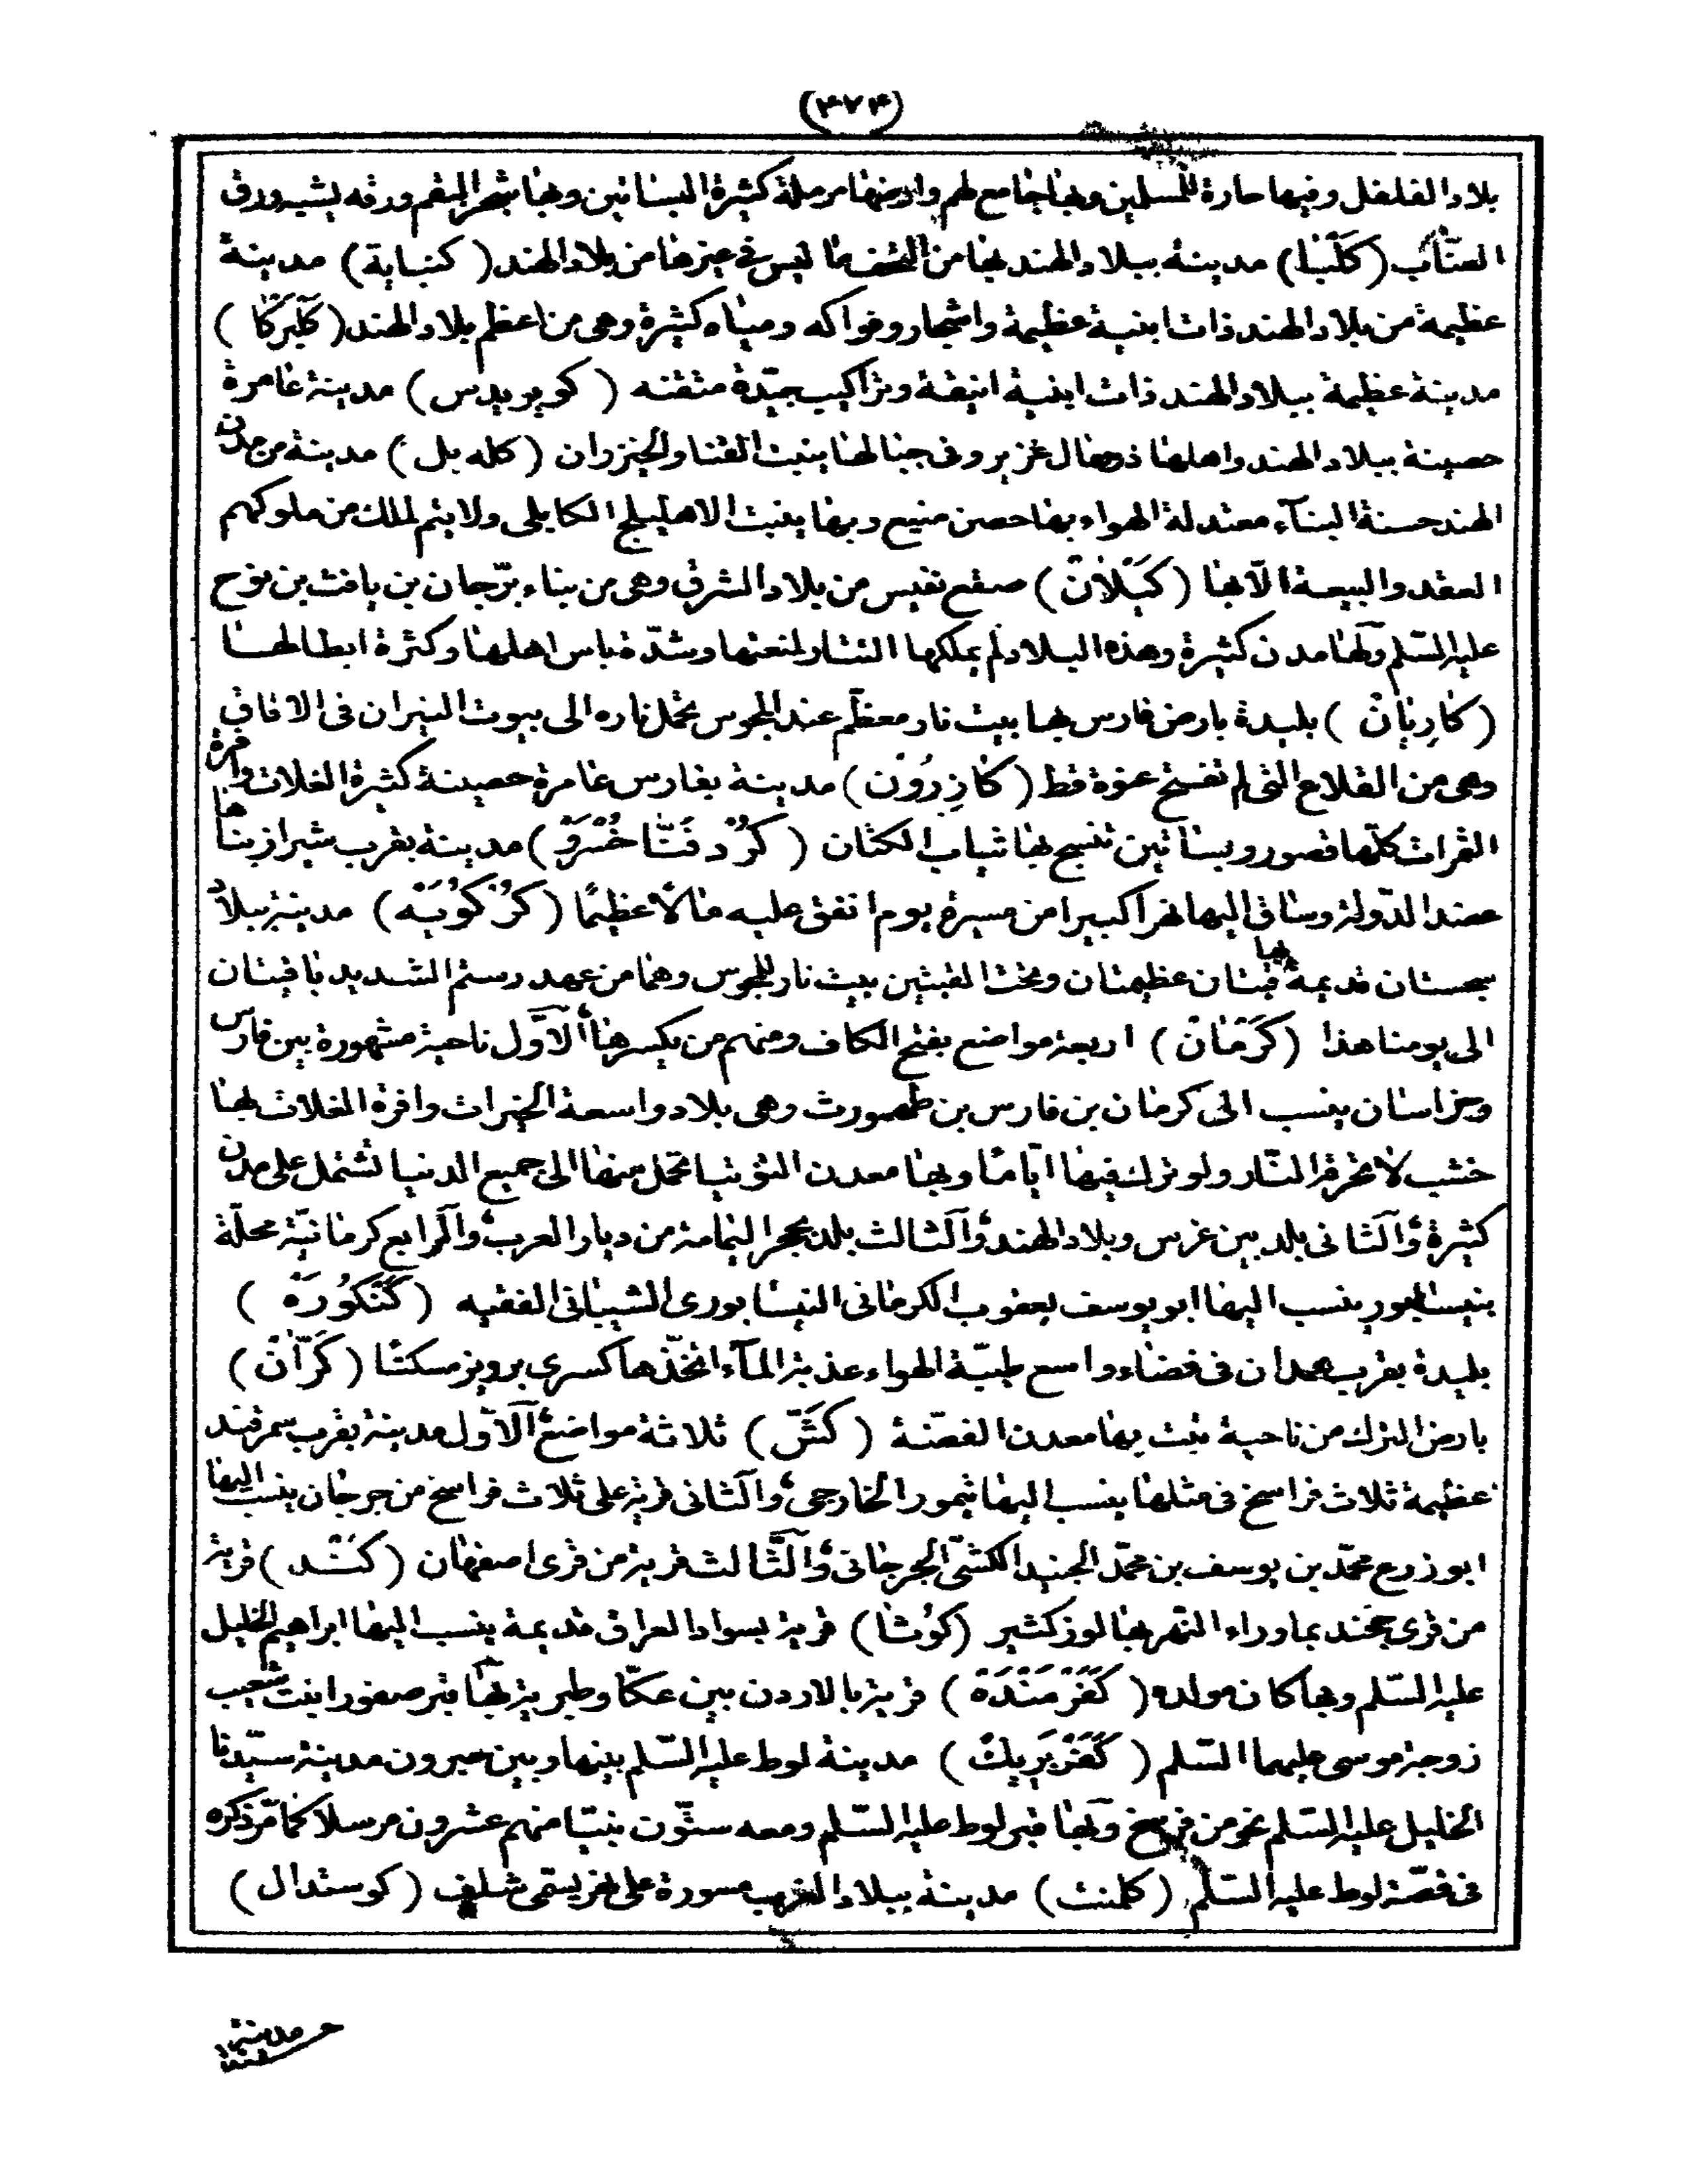 (٤٧٤)
بلاد الفلفل وفيها حارة للمسلمين وبها جامع لهم وارضها مرملة كثيرة البساتين وبها شجر البقم ورقه يشبه ورق
العنّاب (كَلَنْبا) مدينة ببلاد الهند بها من التحف ما ليس في غيرها من بلاد الهند (كنباية) مدينة
عظيمة من بلاد الهند ذات ابنية عظيمة واشجار وفواكه ومياه كثيرة وهى من اعظم بلاد الهند (كَلْبَركا)
مدينة عظيمة ببلاد الهند ذات ابنية انيقة وتراكيب جيّدة متقنه (كوبريدس) مدينة عامرة
حصينة ببلاد الهند واهلها ذو مال غزير وفى جبالها ينبت القنا والخيزران (كله بل) مدينة من مدن
الهند حسنة البنآء معتدلة الهواء بها حصن منيع وبها ينبت الاهليلج الكابلى ولا يتم لملك من ملوكهم
العقد والبيعة الّا بها (كَيْلَانْ) صقع نفيس من بلاد الشرق وهى من بناء برّجان بن يافث بن نوح
عليه السّلم ولها مدن كثيرة وهذه البلاد لم يملكها التتار لمنعتها وشدّة باس اهلها وكثرة ابطالها
(كارِيَانْ) بليدة بارض فارس بها بيت نار معظّم عند المجوس تحمل ناره الى بيوت النيران فى الافاق
وهى من القلاع التى لم تفتح عنوة قط (كازِرُوْن) مدينة بفارس عامرة حصينة كثيرة الغلات وافرة
الثمرات كلّها قصور وبساتين تنسج بها ثياب الكتان (كَرْد فَنَّا خُسْرَوْ) مدينة بقرب شيراز بناها
عضد الدّولة وساق اليها نهرا كبيرا من مسيرة يوم انفق عليه مالًا عظيمًا (كَرْكُوْيَه) مدينة ببلاد
سجستان قديمة بها قبتان عظيمتان وتحت القبتين بيت نار للمجوس وهما من عهد رستم الشديد باقيتان
الى يومنا هذا (كَرْمَانْ) اربعة مواضع بفتح الكاف ومنهم من يكسرها الاوّل ناحية مشهورة بين فارس
وخراسان ينسب الى كرمان بن فارس بن طهمورث وهى بلاد واسعة الخيرات وافرة الغلات بها
خشب لا تحرقه النّار ولو ترك فيها ايّامًا وبها معدن التوتيا تحمل منها الى جميع الدنيا تشتمل على مدن
كثيرة والثانى بلد بين غرس وبلاد الهند والثالث بلد بحجر اليمامة من ديار العرب والرابع كرمانيّة محلّة
بنيسابور ينسب اليها ابو يوسف يعقوب الكرمانى النيسابورى الشيبانى الفقيه (كَنْكُورَهْ)
بليدة بقرب همدان فى فضاء واسع طيبّة الهواء عذبة المآء اتخذّها كسرى برويز مسكنًا (كَرّانْ)
بارض الترك من ناحية تبت بها معدن الفضّة (كَشّ) ثلاثة مواضع الاوّل مدينة بقرب سمرقند
عظيمة ثلاث فراسخ فى مثلها ينسب اليها تيمور الخارجى والثانى قرية على ثلاث فراسخ من جرجان ينسب اليها
ابو زرع محمّد بن يوسف بن محمّد الجنيد الكشّى الجرجانى والثّالث قرية من قرى اصفهان (كَنْد) قرية
من قرى خجند بما وراء النّهر بها لوز كثير (كُوْثا) قرية بسواد العراق قديمة ينسب اليها ابراهيم الخليل
عليه السّلم وبها كان مولده (كَفَرْ مَنْدَهْ) قرية بالاردن بين عكّا وطبرية بها قبر صفورا بنت شعيب
زوجة موسى عليهما السّلم (كَفَرْ بَرِيك) مدينة لوط عليه السّلم بينها وبين حبرون مدينة سيّدنا
الخليل عليه السّلم نحو من فرسخ وبها قبر لوط عليه السّلم ومعه ستّون نبيّا منهم عشرون مرسلا كما مرّ ذكره
فى قصّة لوط عليه السّلم (كلمنت) مدينة ببلاد الغرب مسورة على نهر يسمّى شلف (كوستدال)
مدينة